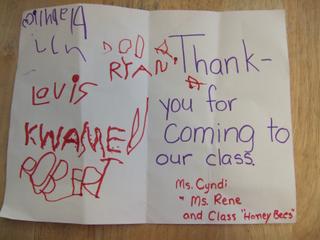 Louis
KWAME
ROBERT
RYAN
Thank-
you for
Coming to
our class.
Ms. Cyndi
" Ms. Rene
and Class "Honey Bees"